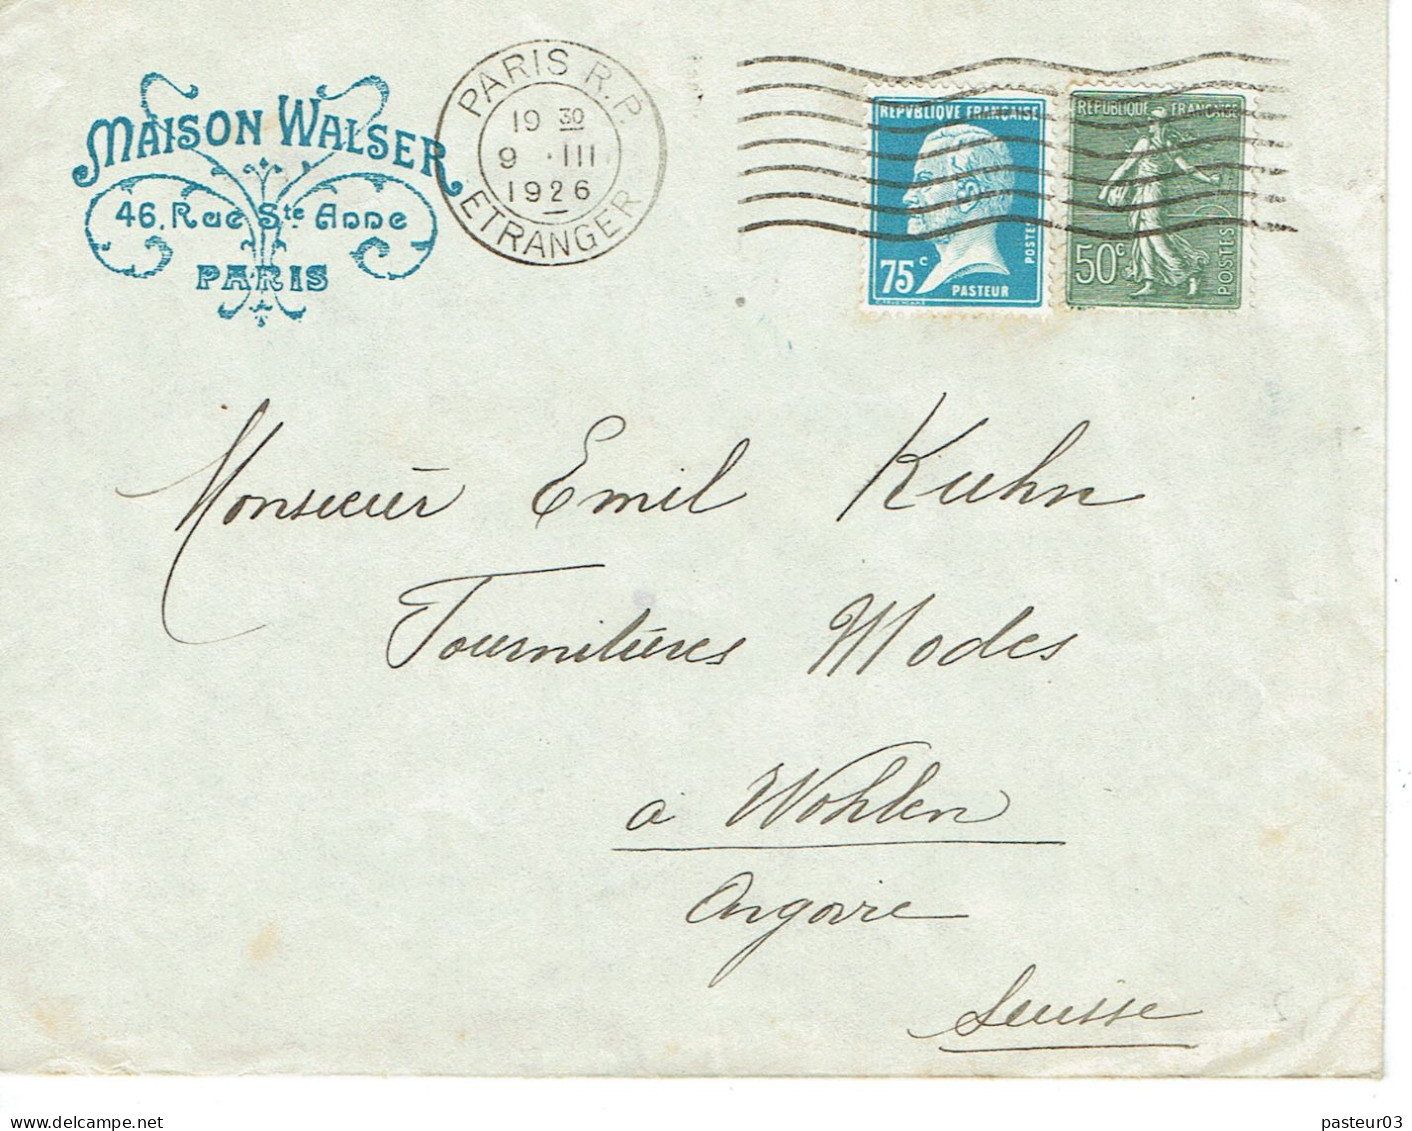 MAISON WALSER
46, Rue Ste Anne
PARIS
PARIS R.P.
19 30
9 · III
1926
ETRANGER
REPVBLIQVE FRANÇAISE
POSTES
75c
PASTEUR
REPUBLIQUE FRANÇAISE
50c
POSTES
Monsieur Emil Kuhn
Fournitures Modes
à Wohlen
Argovie
Suisse
pasteur03
delcampe.net